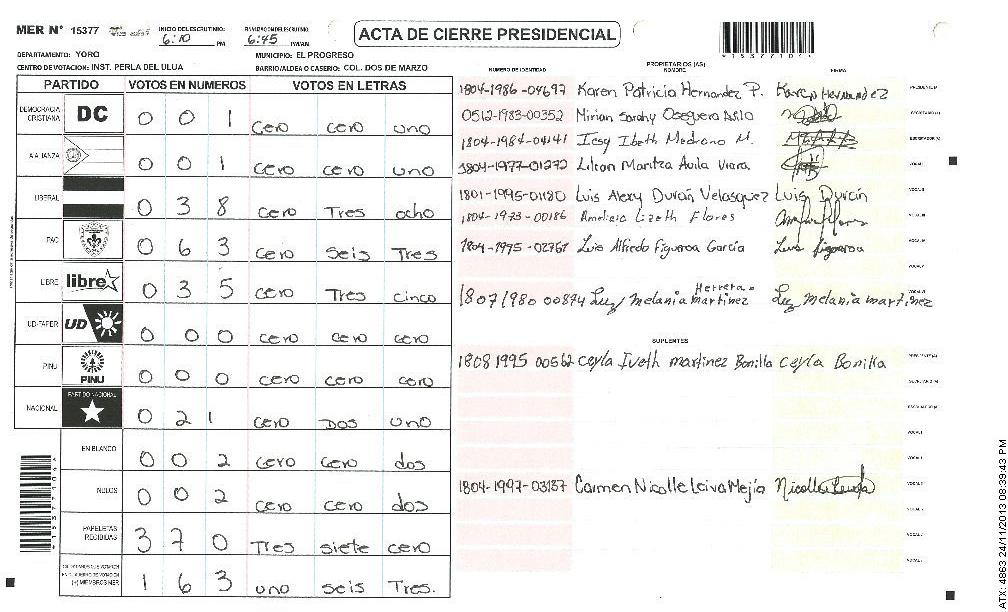 MER N° 15377 INICIO DEL ESCRUTINIO: 6:10 PM FINALIZACION DEL ESCRUTINIO: 6:45 PM/AM ACTA DE CIERRE PRESIDENCIAL
DEPARTAMENTO: YORO MUNICIPIO: EL PROGRESO
CENTRO DE VOTACION: INST. PERLA DEL ULUA BARRIO/ALDEA O CASERIO: COL. DOS DE MARZO
PARTIDO VOTOS EN NUMEROS VOTOS EN LETRAS
DEMOCRACIA CRISTIANA DC 0 0 1 cero cero uno
ALIANZA 0 0 1 cero cero uno
LIBERAL 0 3 8 cero Tres ocho
PAC 0 6 3 cero seis Tres
LIBRE libre 0 3 5 cero Tres cinco
UD-FAPER UD 0 0 0 cero cero cero
PINU PINU 0 0 0 cero cero cero
NACIONAL PARTIDO NACIONAL 0 2 1 cero Dos uno
EN BLANCO 0 0 2 cero cero dos
NULOS 0 0 2 cero cero dos
PAPELETAS RECIBIDAS 3 7 0 Tres siete cero
1 6 3 uno seis Tres.
NUMERO DE IDENTIDAD PROPIETARIOS (AS) NOMBRE FIRMA
1804-1986-04697 Karen Patricia Hernandez P. Karen Hernandez
0512-1983-00352 Mirian Sarahy Oseguera
1804-1984-04141 Iesy Ibeth Medrano M.
1804-1977-01272 Lilian Maritza Avila
1801-1995-01180 Luis Alexy Durán Velasquez Luis Durán
1804-1973-00186 Lizeth Flores
1804-1995-02767 Luis Alfredo Figueroa García Luis Figueroa
1807/1980 00874 Luz Melania martinez Herrera Luz Melania martinez
SUPLENTES
1808 1995 00562 ceyla Iveth martinez Bonilla ceyla Bonilla
1804-1997-03137 Carmen Nicolle Leiva Mejía Nicolle
ATX: 4863 24/11/2013 08:39:43 PM